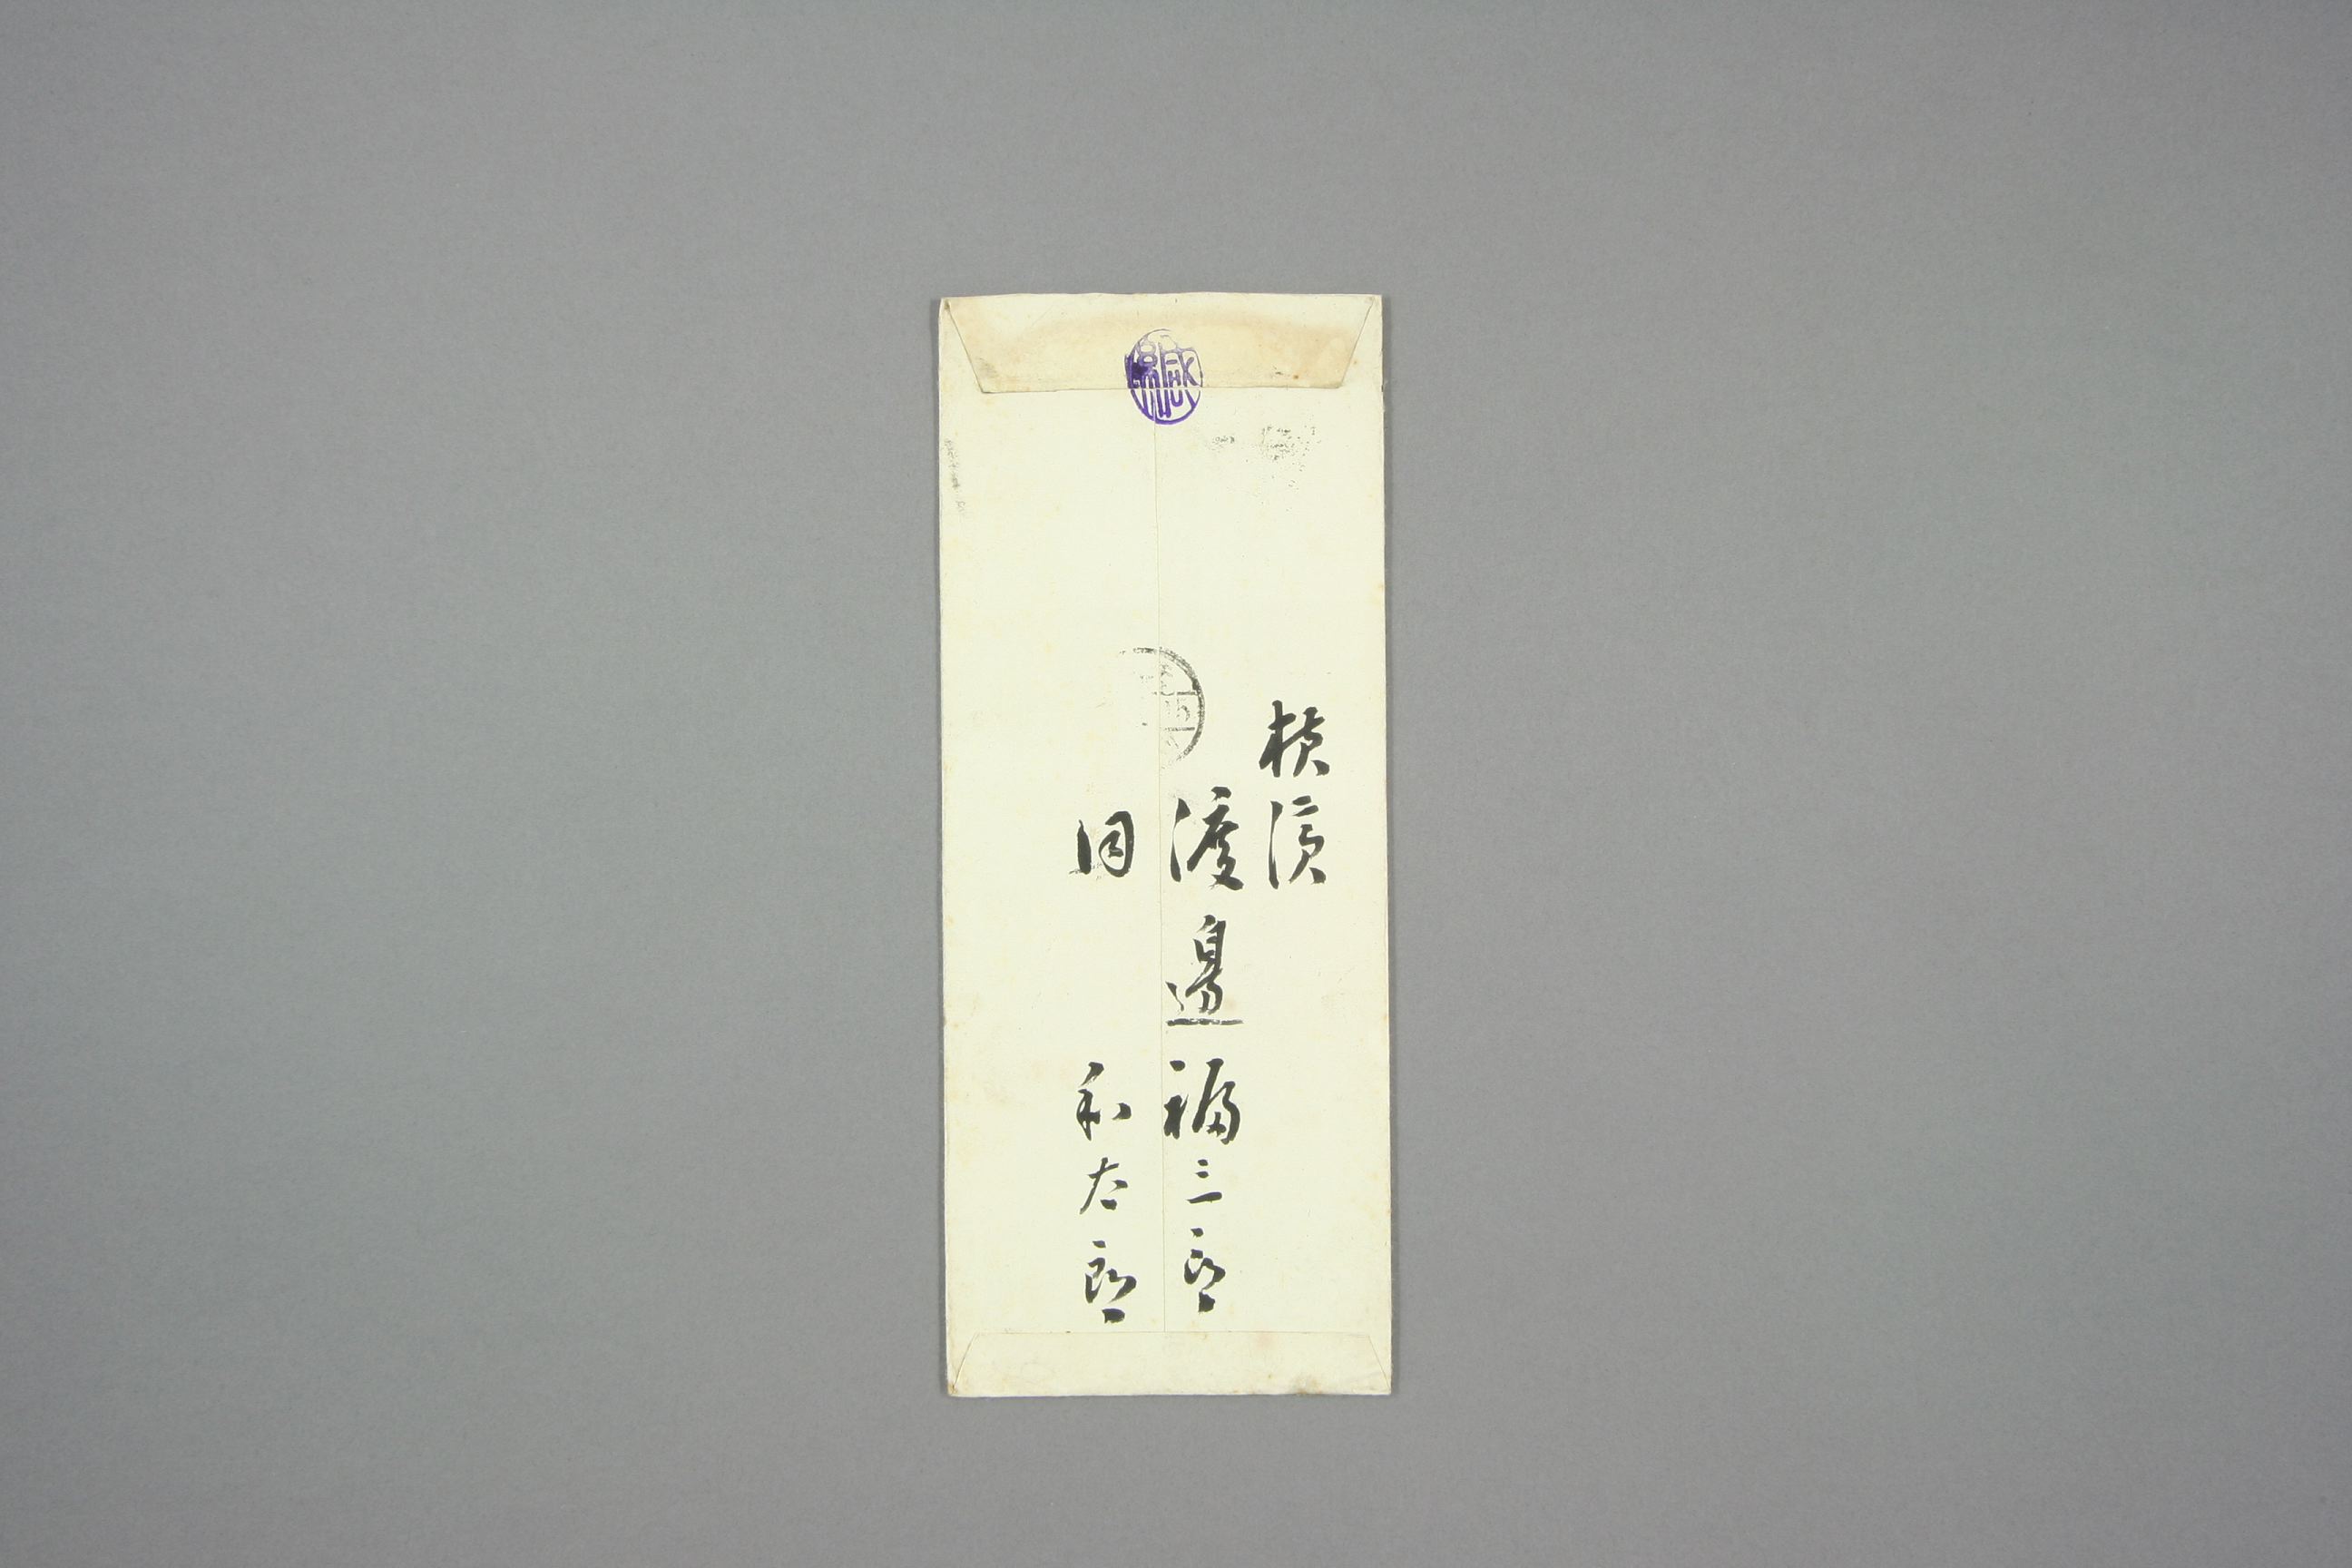 緘
横濱
渡邊福三郎
同 和太郎